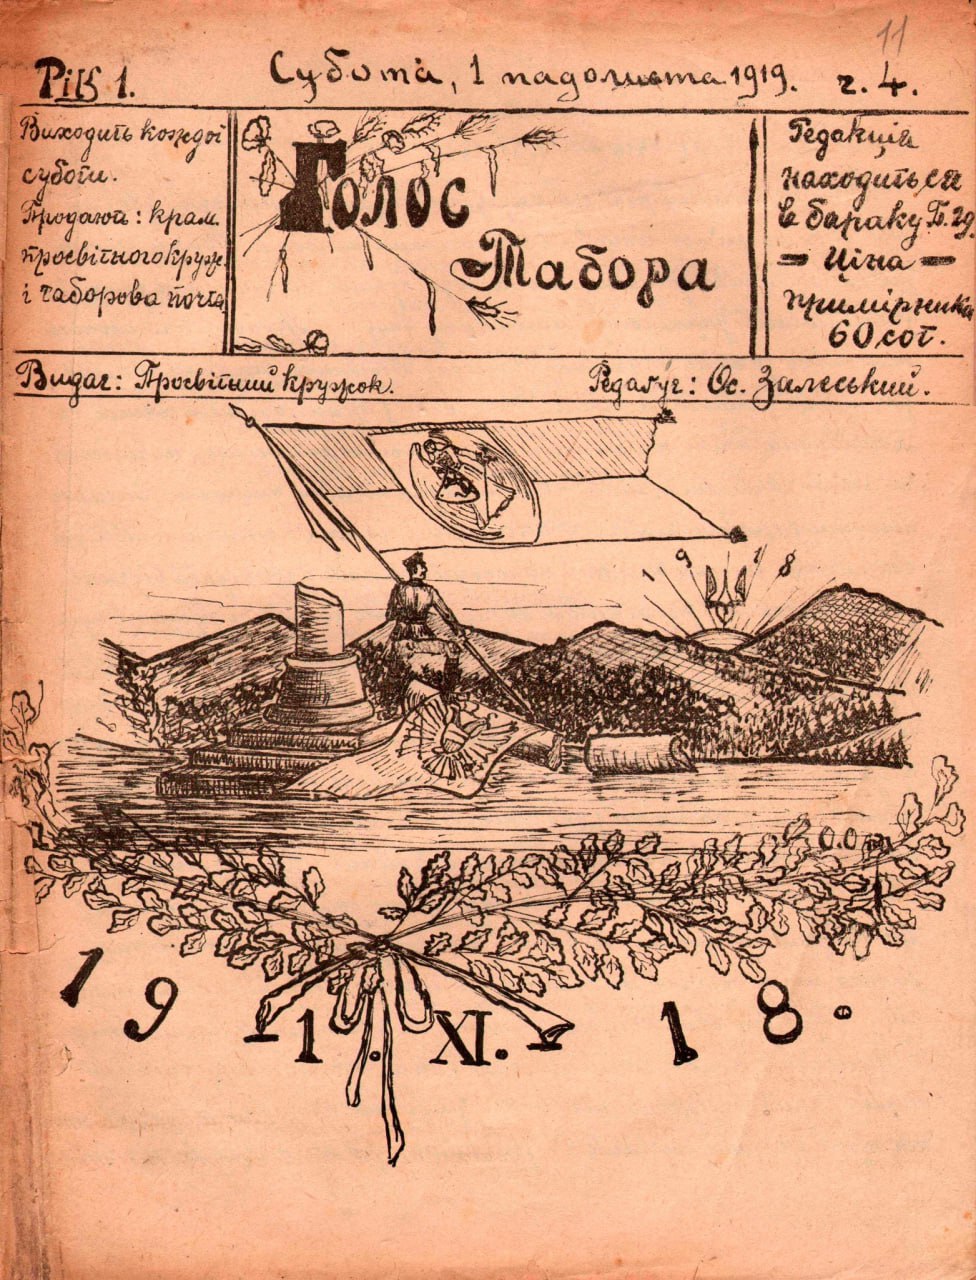 11
Рік 1.
Субота, 1 падолиста 1919.
ч. 4.
Виходить кождої
суботи.
Продають: крам.
просвітного круж.
і таборова почта
Голос
Табора
Редакція
находиться
в бараку Б. 29.
– Ціна –
примірника
60 сот.
Видає: Просвітний кружок.
Редаґує: Ос. Залеський.
1 9 1 8
19 1. XI. 18.